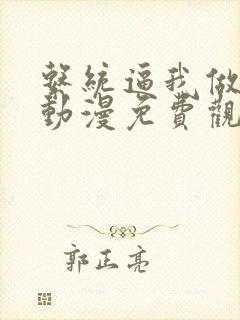 繫統逼我做
動漫免費觀
郭正亮